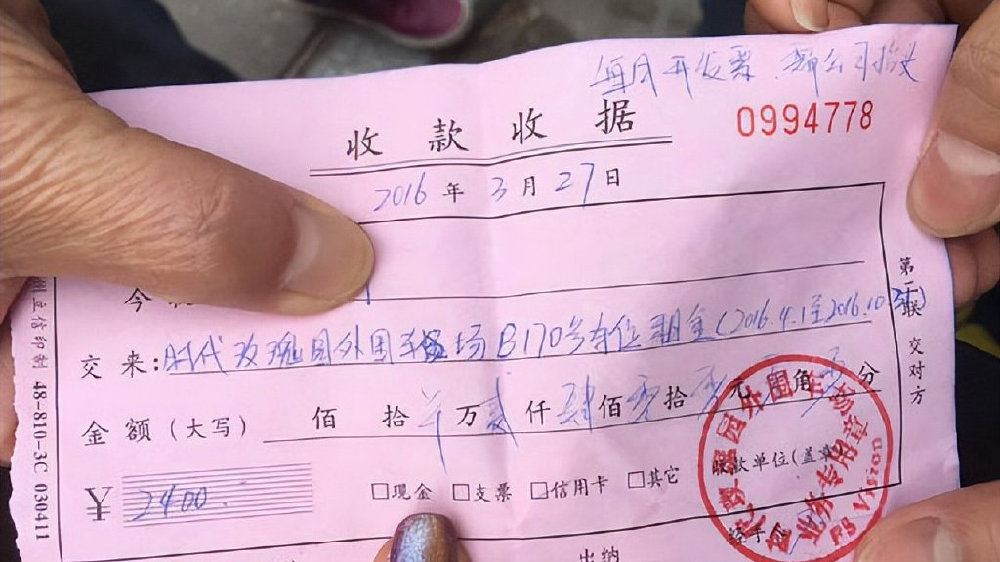 每月开发票
公司抬头
收款收据
0994778
2016年3月27日
今
交来:时代玫瑰园外围车场B170号车位租金(2016.4.1至2016.10.31)
金额(大写) 佰 拾 万贰仟肆佰零拾零元零角零分
¥2400 □现金 □支票 □信用卡 □其它 收款单位(盖章)
出纳
第二联 交对方
立信印制 48-810-3C 030411